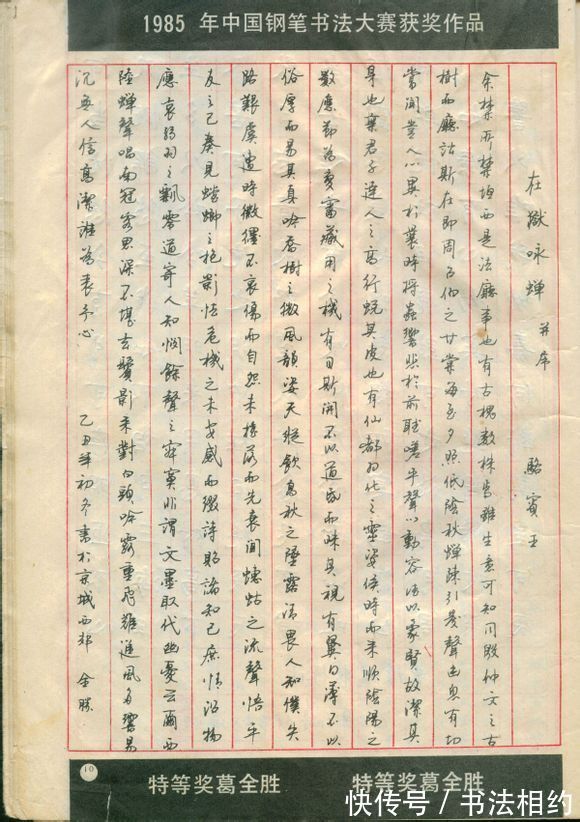 1985 年中国钢笔书法大赛获奖作品
在獄咏蝉 并序 駱賓王
余禁所禁垣西是法廳事也有古槐数株焉雖生意可知同殷仲文之古
樹而廳訟斯在即周召伯之甘棠每至夕照低陰秋蝉疎引發聲幽息有切
嘗聞豈人心異於曩時将蟲響悲於前聴嗟乎聲以動容德以象賢故潔其
身也禀君子達人之高行蜕其皮也有仙都羽化之靈姿候時而来順陰陽之
数應節為變審藏用之機有目斯開不以道昏而昧其視有翼自薄不以
俗厚而易其真吟喬樹之微風韻姿天縱飲高秋之墜露清畏人知僕失
路艱虞遭時徽纆不哀傷而自怨未摇落而先衰聞蟪蛄之流聲悟平
反之已奏見螳螂之抱影怯危機之未安感而綴詩貽諸知己庶情沿物
應哀弱羽之飄零道寄人知憫餘聲之寂寞非謂文墨取代幽憂云爾西
陸蝉聲唱南冠客思深不堪玄鬢影来對白頭吟露重飛難進風多響易
沉無人信高潔誰為表予心 乙丑年初冬書於京城西郊 全勝
10
特等奖葛全胜 特等奖葛全胜
快传号 / 书法相约